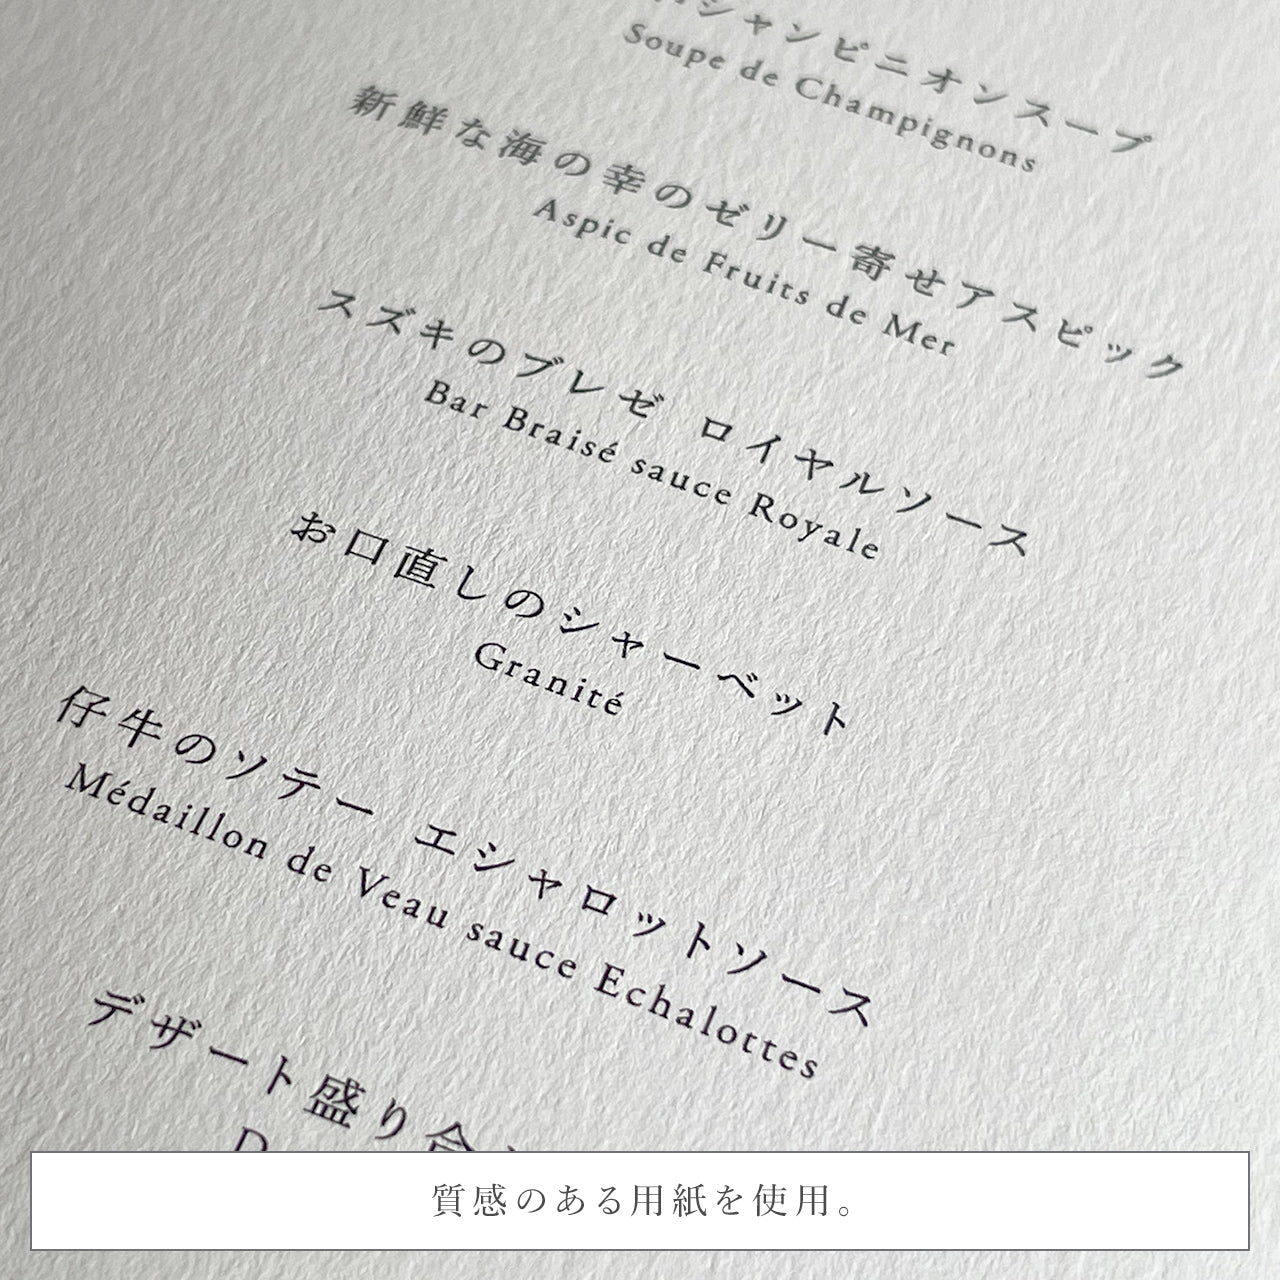 シャンピニオンスープ
Soupe de Champignons
新鮮な海の幸のゼリー寄せアスピック
Aspic de Fruits de Mer
スズキのブレゼ ロイヤルソース
Bar Braisé sauce Royale
お口直しのシャーベット
Granité
仔牛のソテー エシャロットソース
Médaillon de Veau sauce Echalottes
デザート盛り合
質感のある用紙を使用。